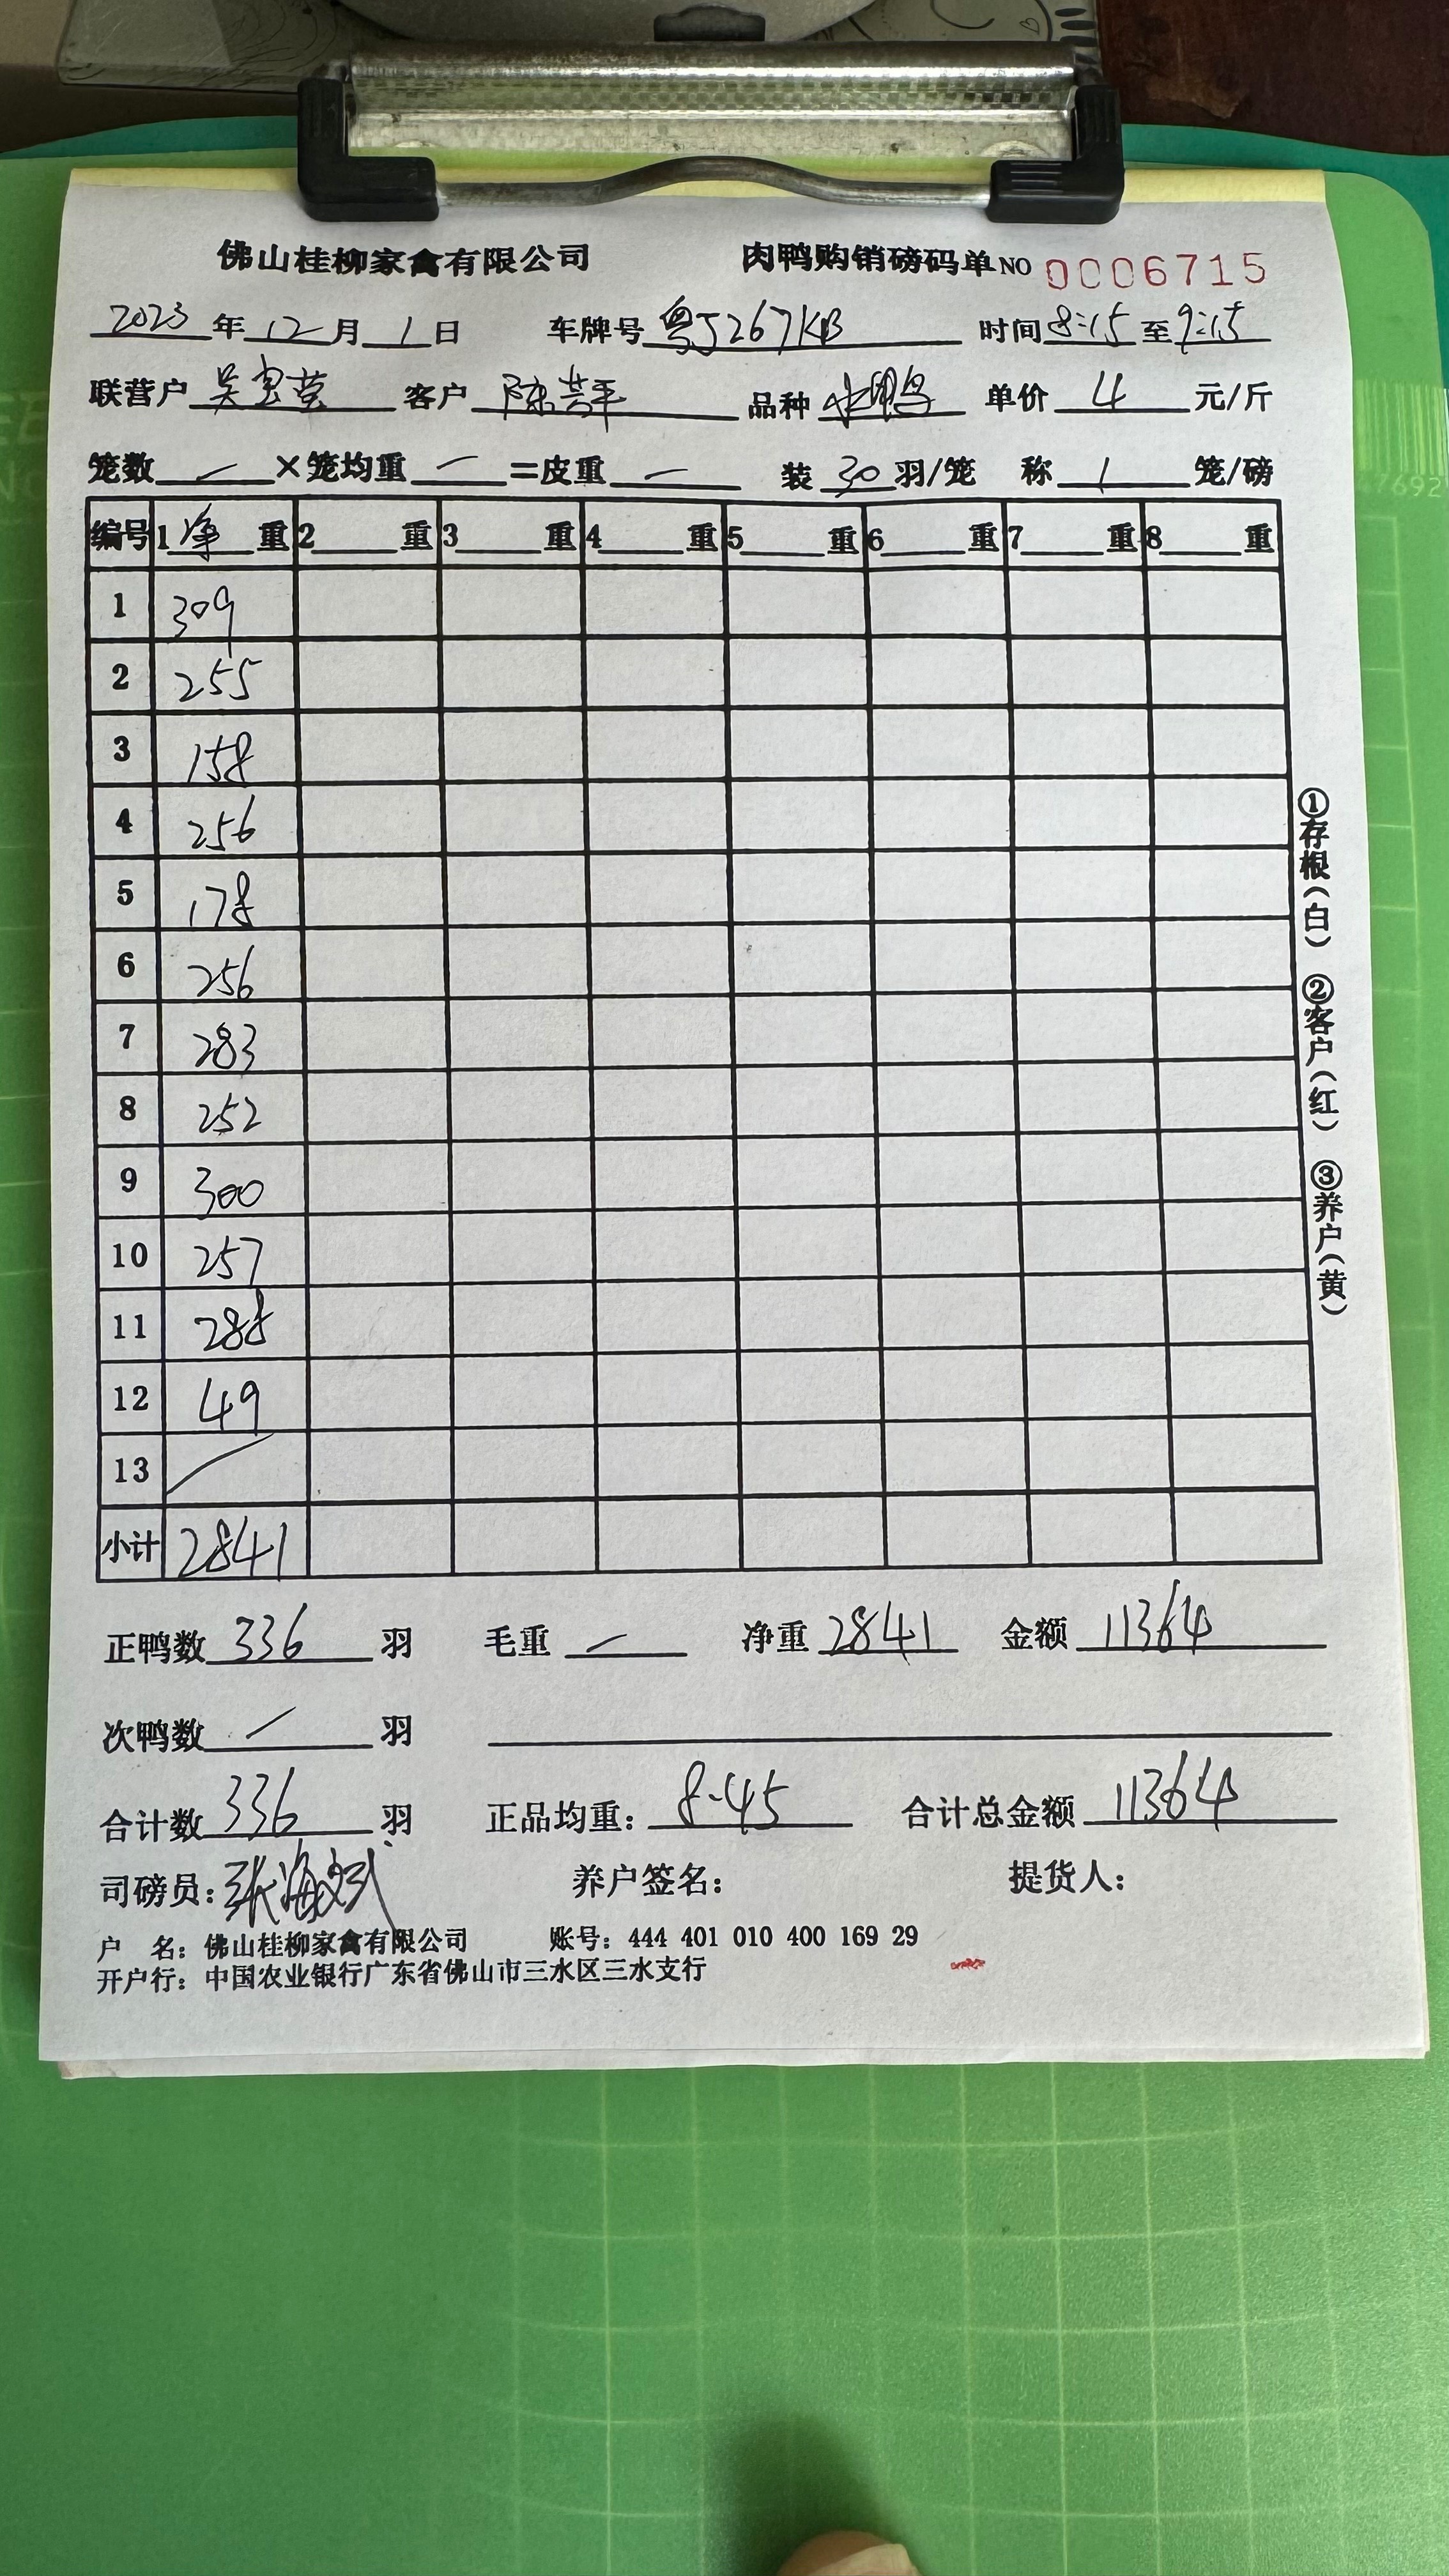 佛山桂柳家禽有限公司 肉鸭购销磅码单 NO 0006715
2023 年 12 月 1 日 车牌号 粤J267KB 时间 8:15 至 9:15
联营户 吴 客户 陈 品种 水鸭 单价 4 元/斤
笼数 — ×笼均重 — =皮重 — 装 30 羽/笼 称 1 笼/磅
编号 1 净 重 2 重 3 重 4 重 5 重 6 重 7 重 8 重
1 309
2 255
3 158
4 256
5 178
6 256
7 283
8 252
9 300
10 257
11 288
12 49
13 /
小计 2841
①存根(白) ②客户(红) ③养户(黄)
正鸭数 336 羽 毛重 — 净重 2841 金额 11364
次鸭数 / 羽
合计数 336 羽 正品均重: 8.45 合计总金额 11364
司磅员: 张海斌 养户签名: 提货人:
户 名: 佛山桂柳家禽有限公司 账号: 444 401 010 400 169 29
开户行: 中国农业银行广东省佛山市三水区三水支行